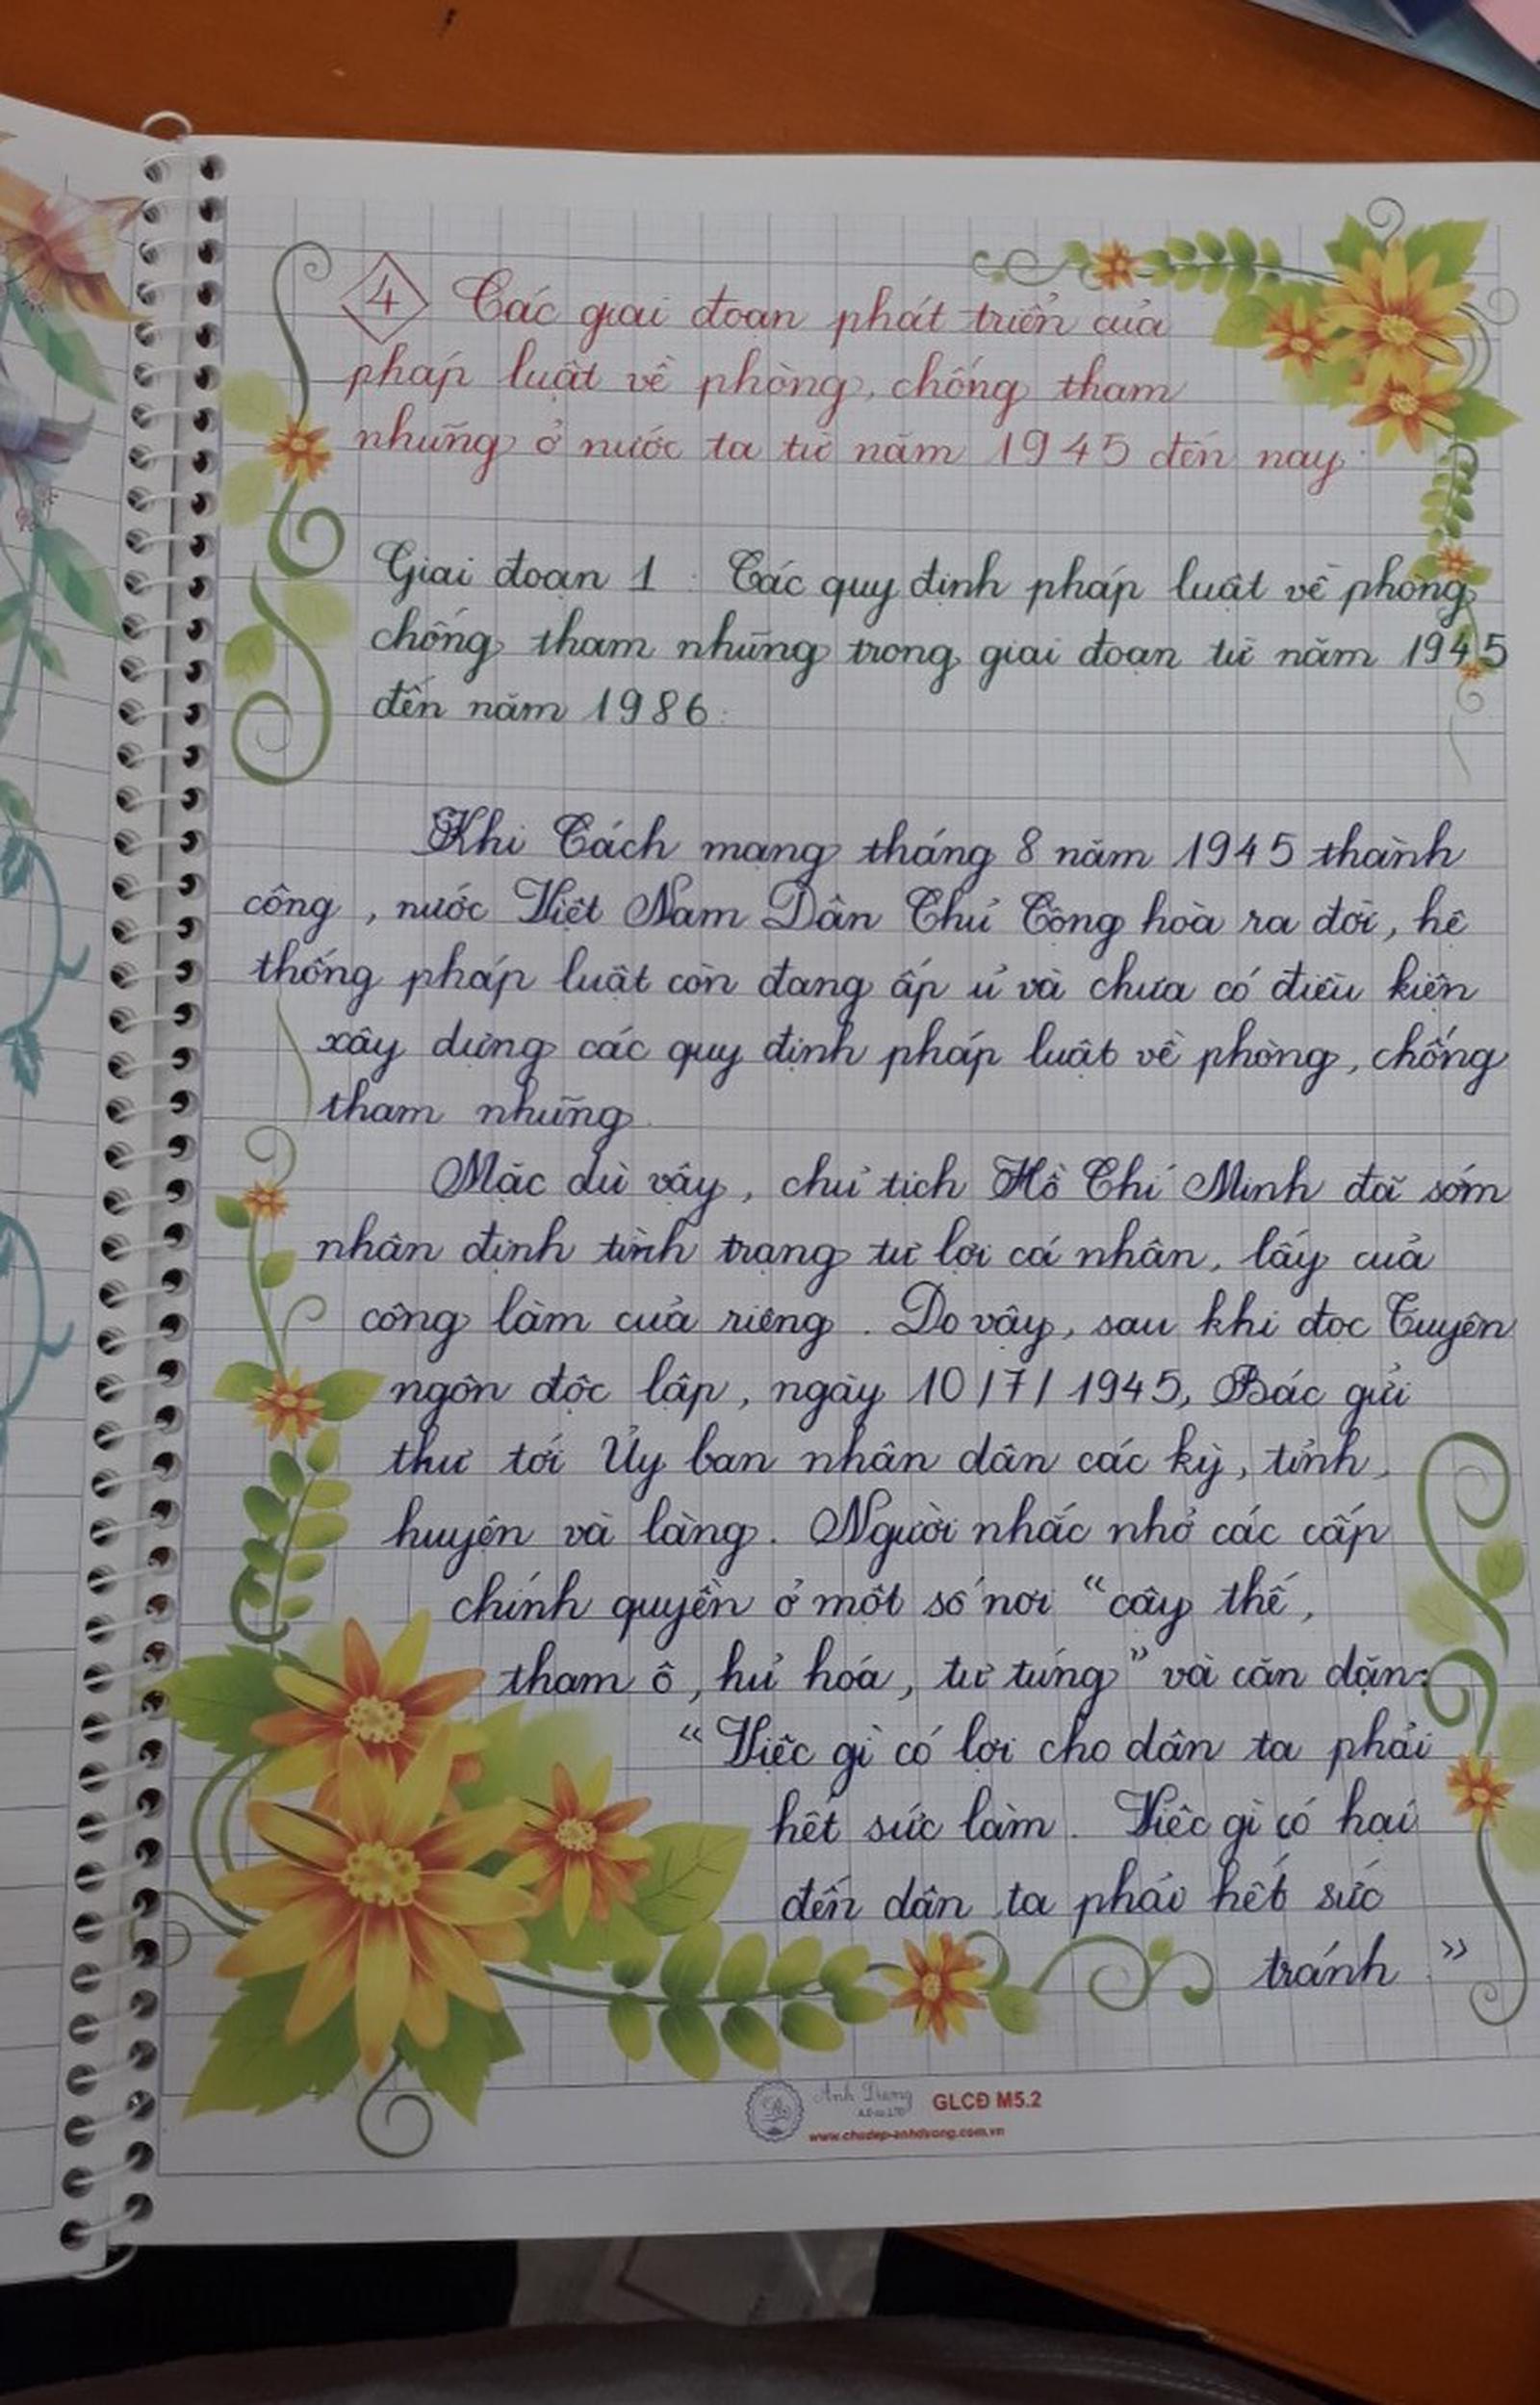 4 Các giai đoạn phát triển của
pháp luật về phòng, chống tham
nhũng ở nước ta từ năm 1945 đến nay.
Giai đoạn 1 : Các quy định pháp luật về phòng
chống tham nhũng trong giai đoạn từ năm 1945
đến năm 1986:
Khi Cách mạng tháng 8 năm 1945 thành
công, nước Việt Nam Dân Chủ Cộng hoà ra đời, hệ
thống pháp luật còn đang ấp ủ và chưa có điều kiện
xây dựng các quy định pháp luật về phòng, chống
tham nhũng.
Mặc dù vậy, chủ tịch Hồ Chí Minh đã sớm
nhận định tình trạng tư lợi cá nhân, lấy của
công làm của riêng. Do vậy, sau khi đọc Tuyên
ngôn độc lập, ngày 10/7/1945, Bác gửi
thư tới Ủy ban nhân dân các kỳ, tỉnh,
huyện và làng. Người nhắc nhở các cấp
chính quyền ở một số nơi "cậy thế,
tham ô, hủ hoá, tư túng" và căn dặn:
"Việc gì có lợi cho dân ta phải
hết sức làm. Việc gì có hại
đến dân ta phải hết sức
tránh."
Anh Duong
GLCĐ M5.2
www.chudep-anhduong.com.vn